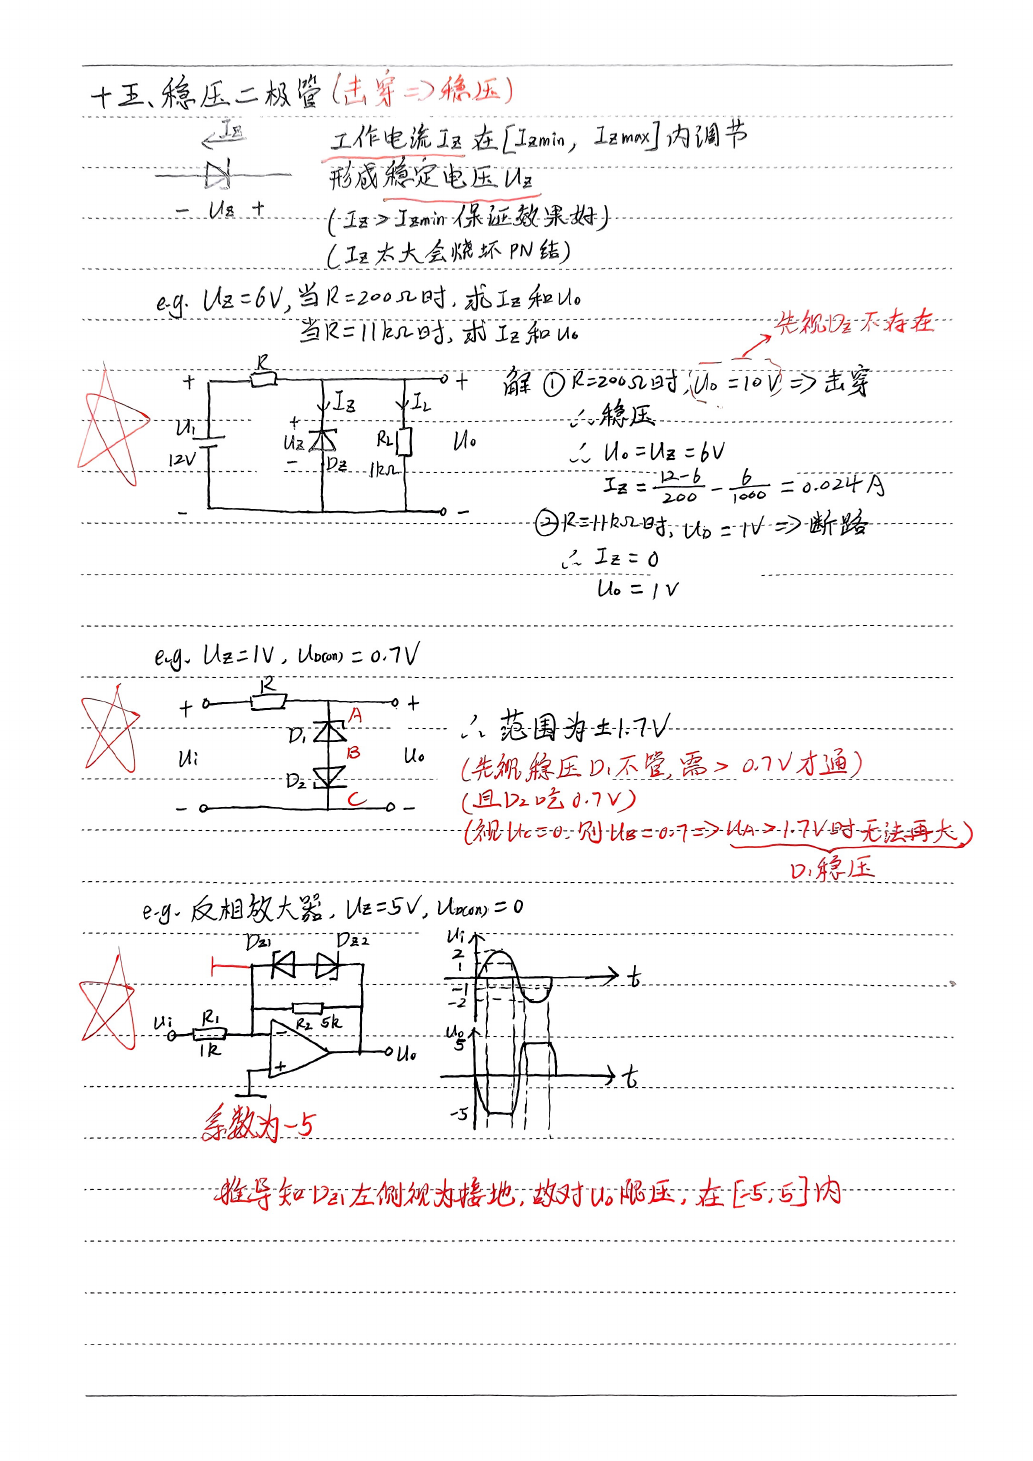 十五、稳压二极管(击穿=>稳压)
Iz
工作电流Iz在[Izmin, Izmax]内调节
形成稳定电压Uz
- Uz +
(Iz>Izmin保证效果好)
(Iz太大会烧坏PN结)
e.g. Uz=6V, 当R=200Ω时, 求Iz和Uo
当R=11kΩ时, 求Iz和Uo
先视Dz不存在
R
+ +
Iz IL
Ui + Uz - Dz RL Uo
12V 1kΩ
- -
解 ①R=200Ω时, Uo=10V => 击穿
∴ 稳压
∴ Uo=Uz=6V
Iz = 12-6/200 - 6/1000 = 0.024A
②R=11kΩ时, Uo=1V => 断路
∴ Iz=0
Uo=1V
e.g. Uz=1V, UD(on)=0.7V
R
+ +
A
D1
B
Ui Uo
D2
C
- -
∴ 范围为±1.7V
(先视稳压D1不管,需>0.7V才通)
(且D2吃0.7V)
(视Uc=0.则UB=0.7=>UA>1.7V时无法再大)
D1稳压
e.g. 反相放大器, Uz=5V, UD(on)=0
Dz1 Dz2
Ui R1 R2 5k
1k
- +
Uo
Ui
2
1
-1
-2
t
Uo
5
-5
t
系数为-5
推导知Dz1左侧视为接地,故对Uo限压,在[-5,5]内